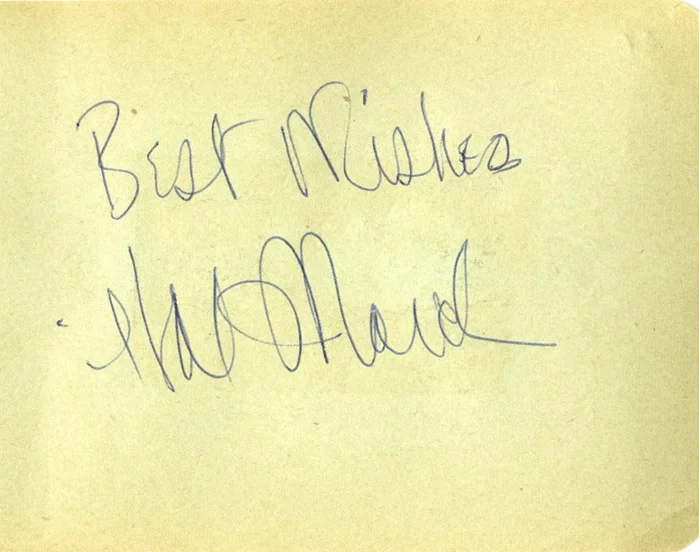 Best Wishes
Hal March